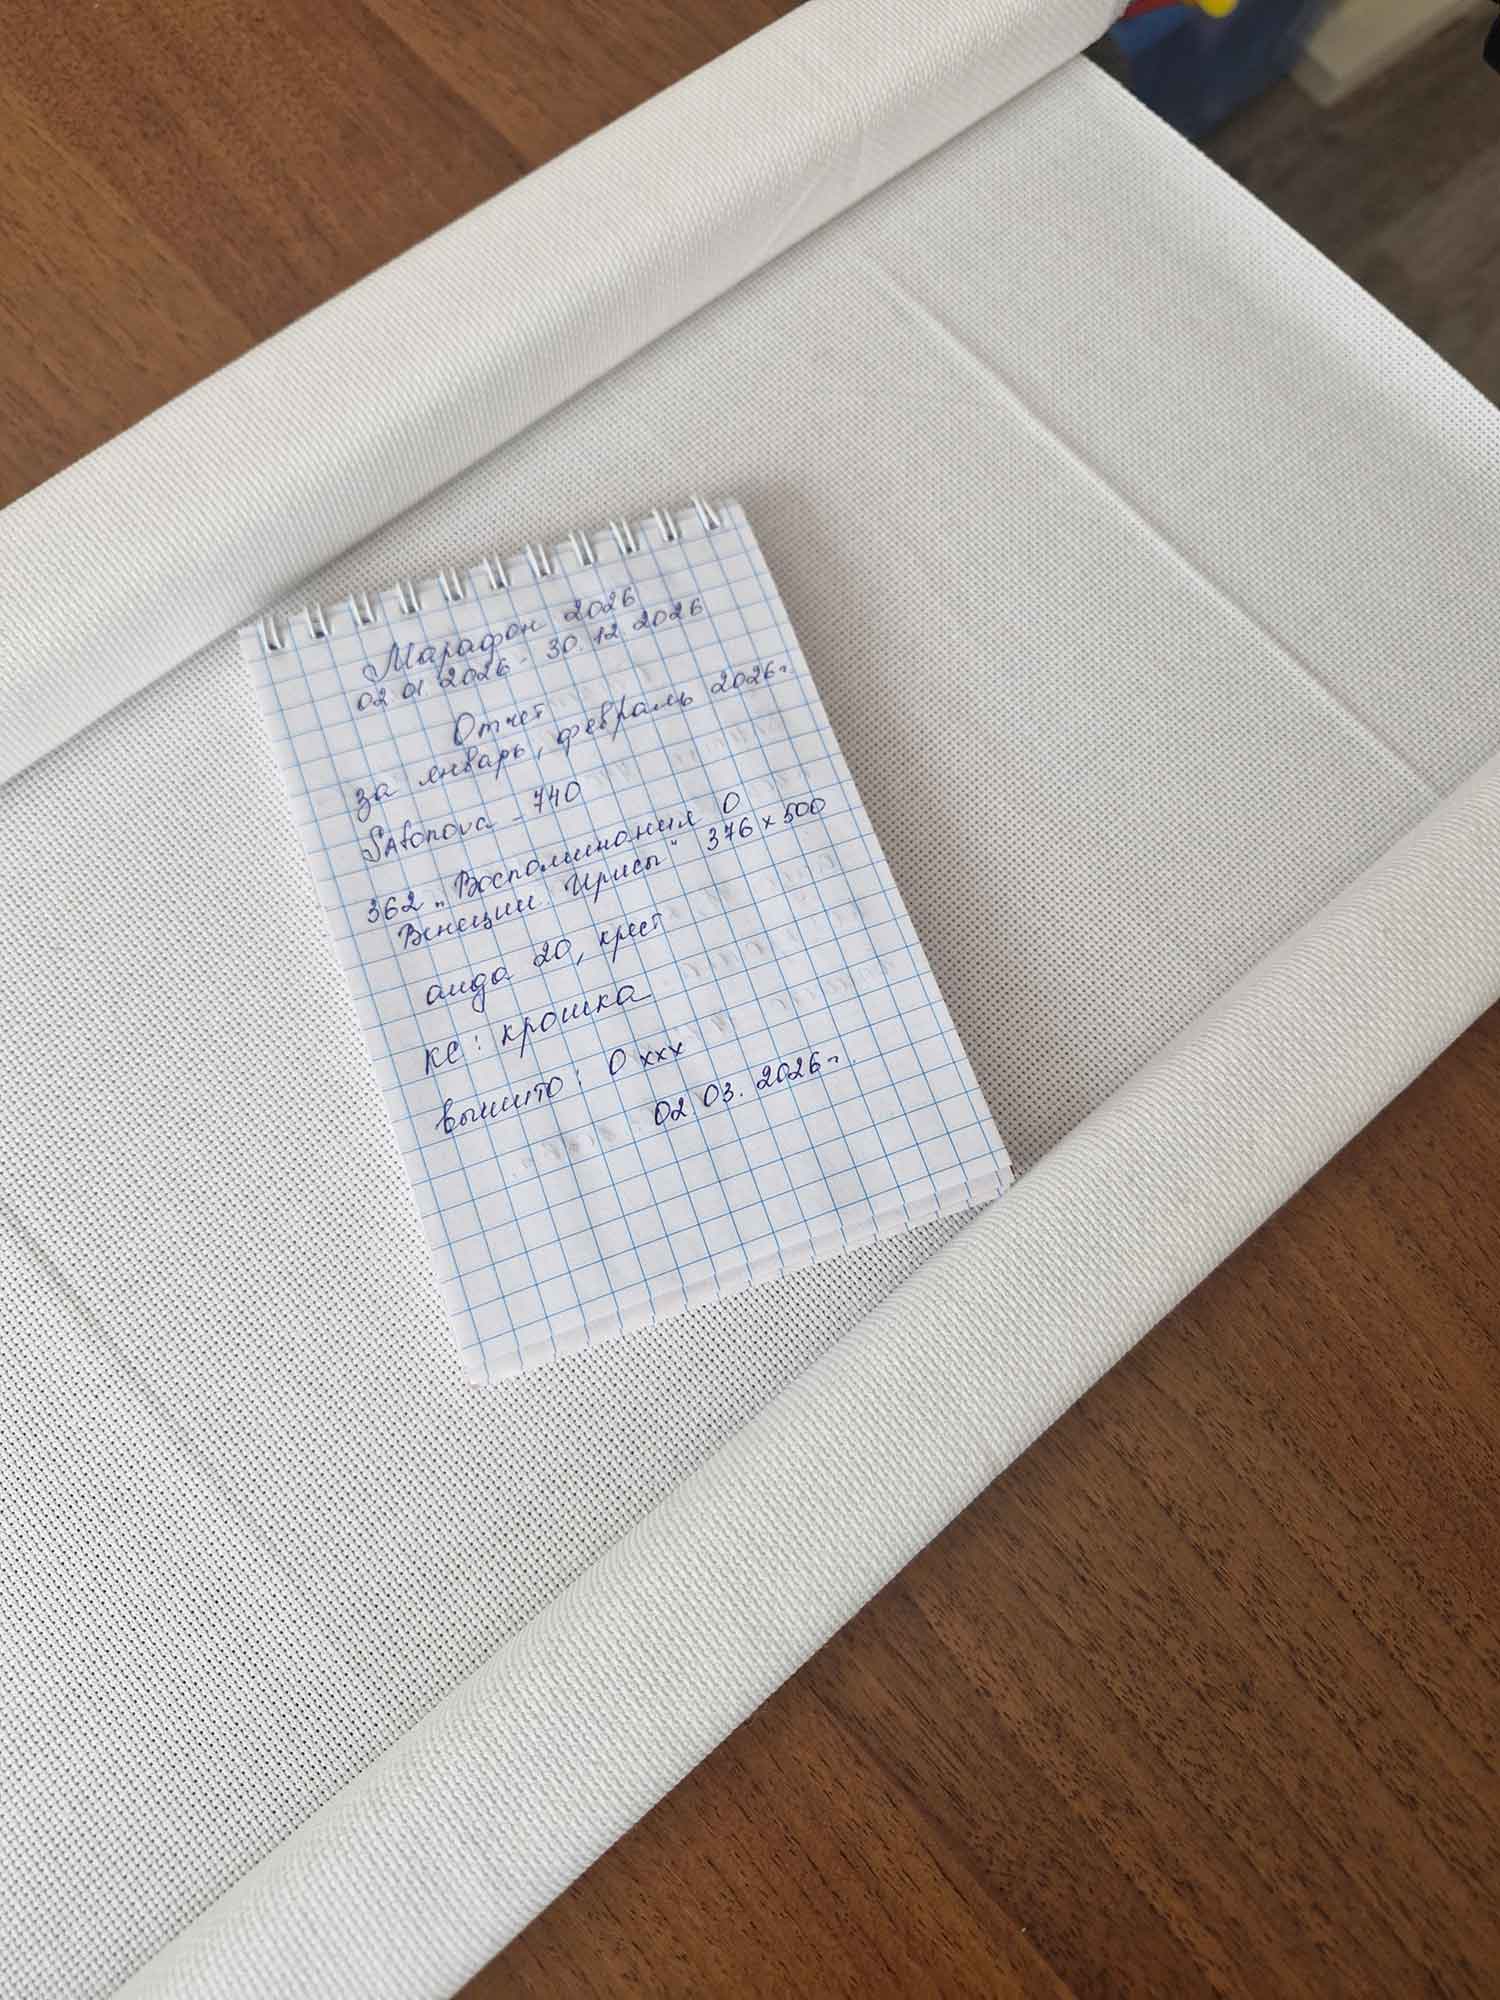 Марафон 2026
02.01.2026 - 30.12.2026
Отчет
за январь, февраль 2026г.
SAfonova - 740
362 „Воспоминания О
Венеции. Ирисы" 376 x 500
аида 20, крест
КС: крошка
вышито: 0 xxx
02.03.2026г.